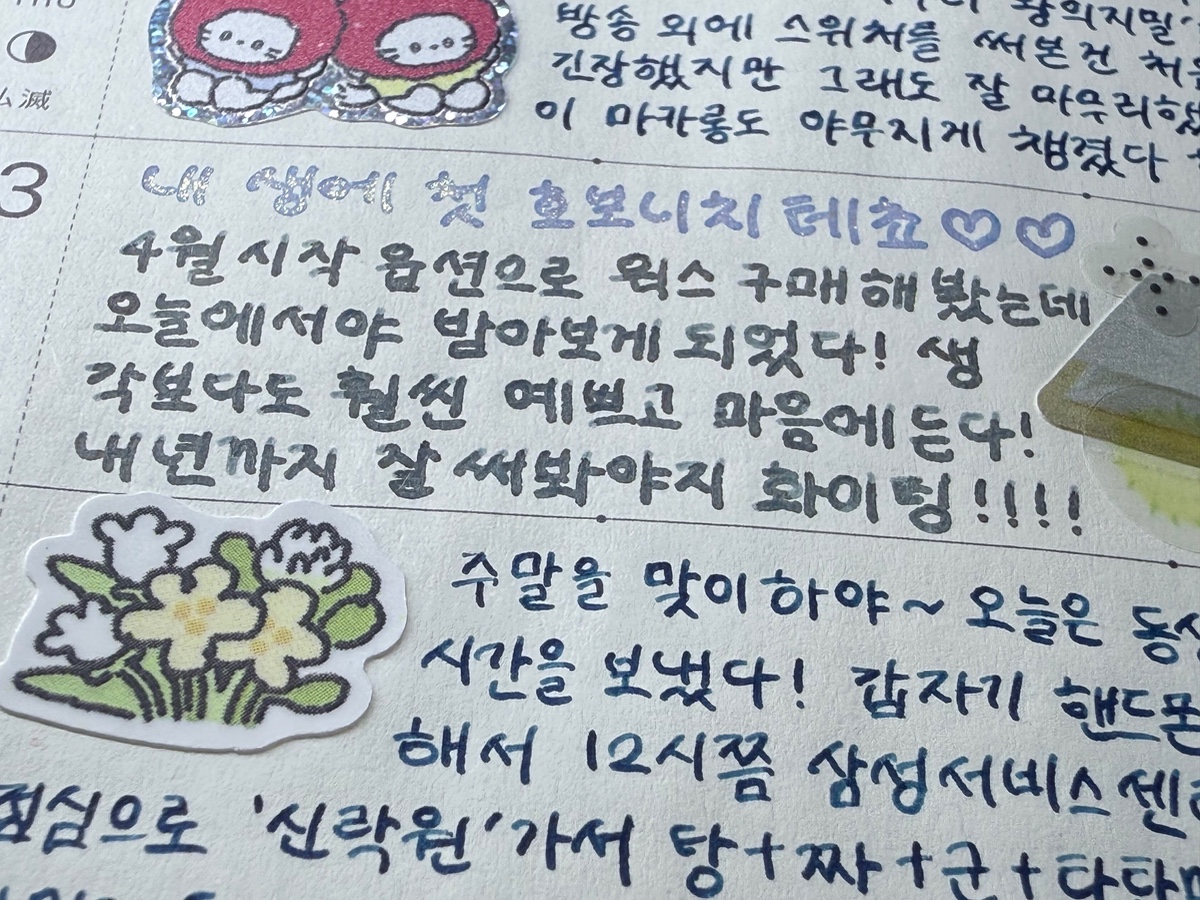 THU
방송 외에 스위처를 써본건
긴장했지만 그래도 잘 마무리했
이 마카롱도 야무지게 챙겼다
3
내 생에 첫 호보니치 테쵸♡♡
4월 시작 옵션으로 웍스 구매해봤는데
오늘에서야 받아보게 되었다! 생
각보다도 훨씬 예쁘고 마음에 든다!
내년까지 잘 써봐야지 화이팅!!!!
주말을 맞이하야~ 오늘은
시간을 보냈다! 갑자기
해서 12시쯤 삼성서비스센
점심으로 '신락원'가서 탕+짜+군+